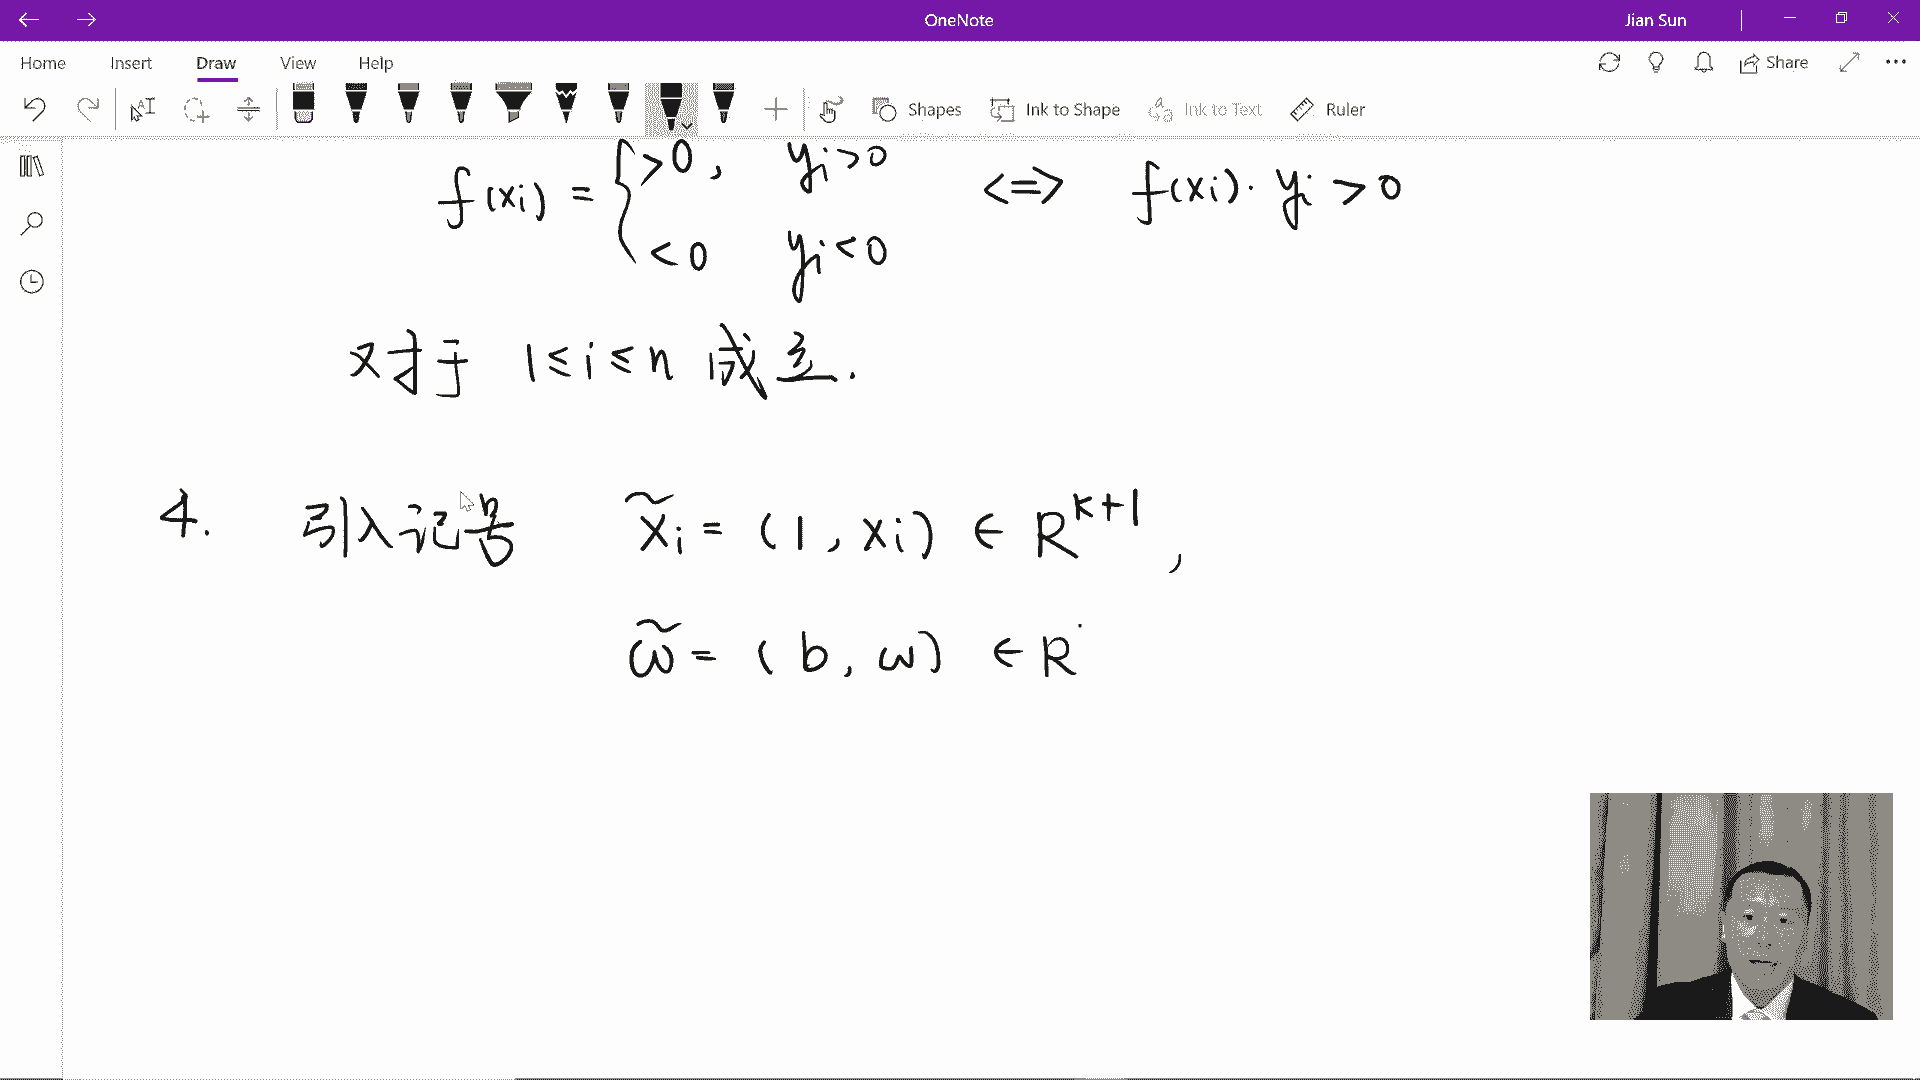 OneNote
Jian Sun
Home Insert Draw View Help
Share
Shapes Ink to Shape Ink to Text Ruler
f(xi) = { >0, yi>0
<0 yi<0
<=> f(xi)·yi >0
对于 1≤i≤n 成立.
4. 引入记号 x̃i = (1, xi) ∈ R^{k+1},
ω̃ = (b, ω) ∈ R